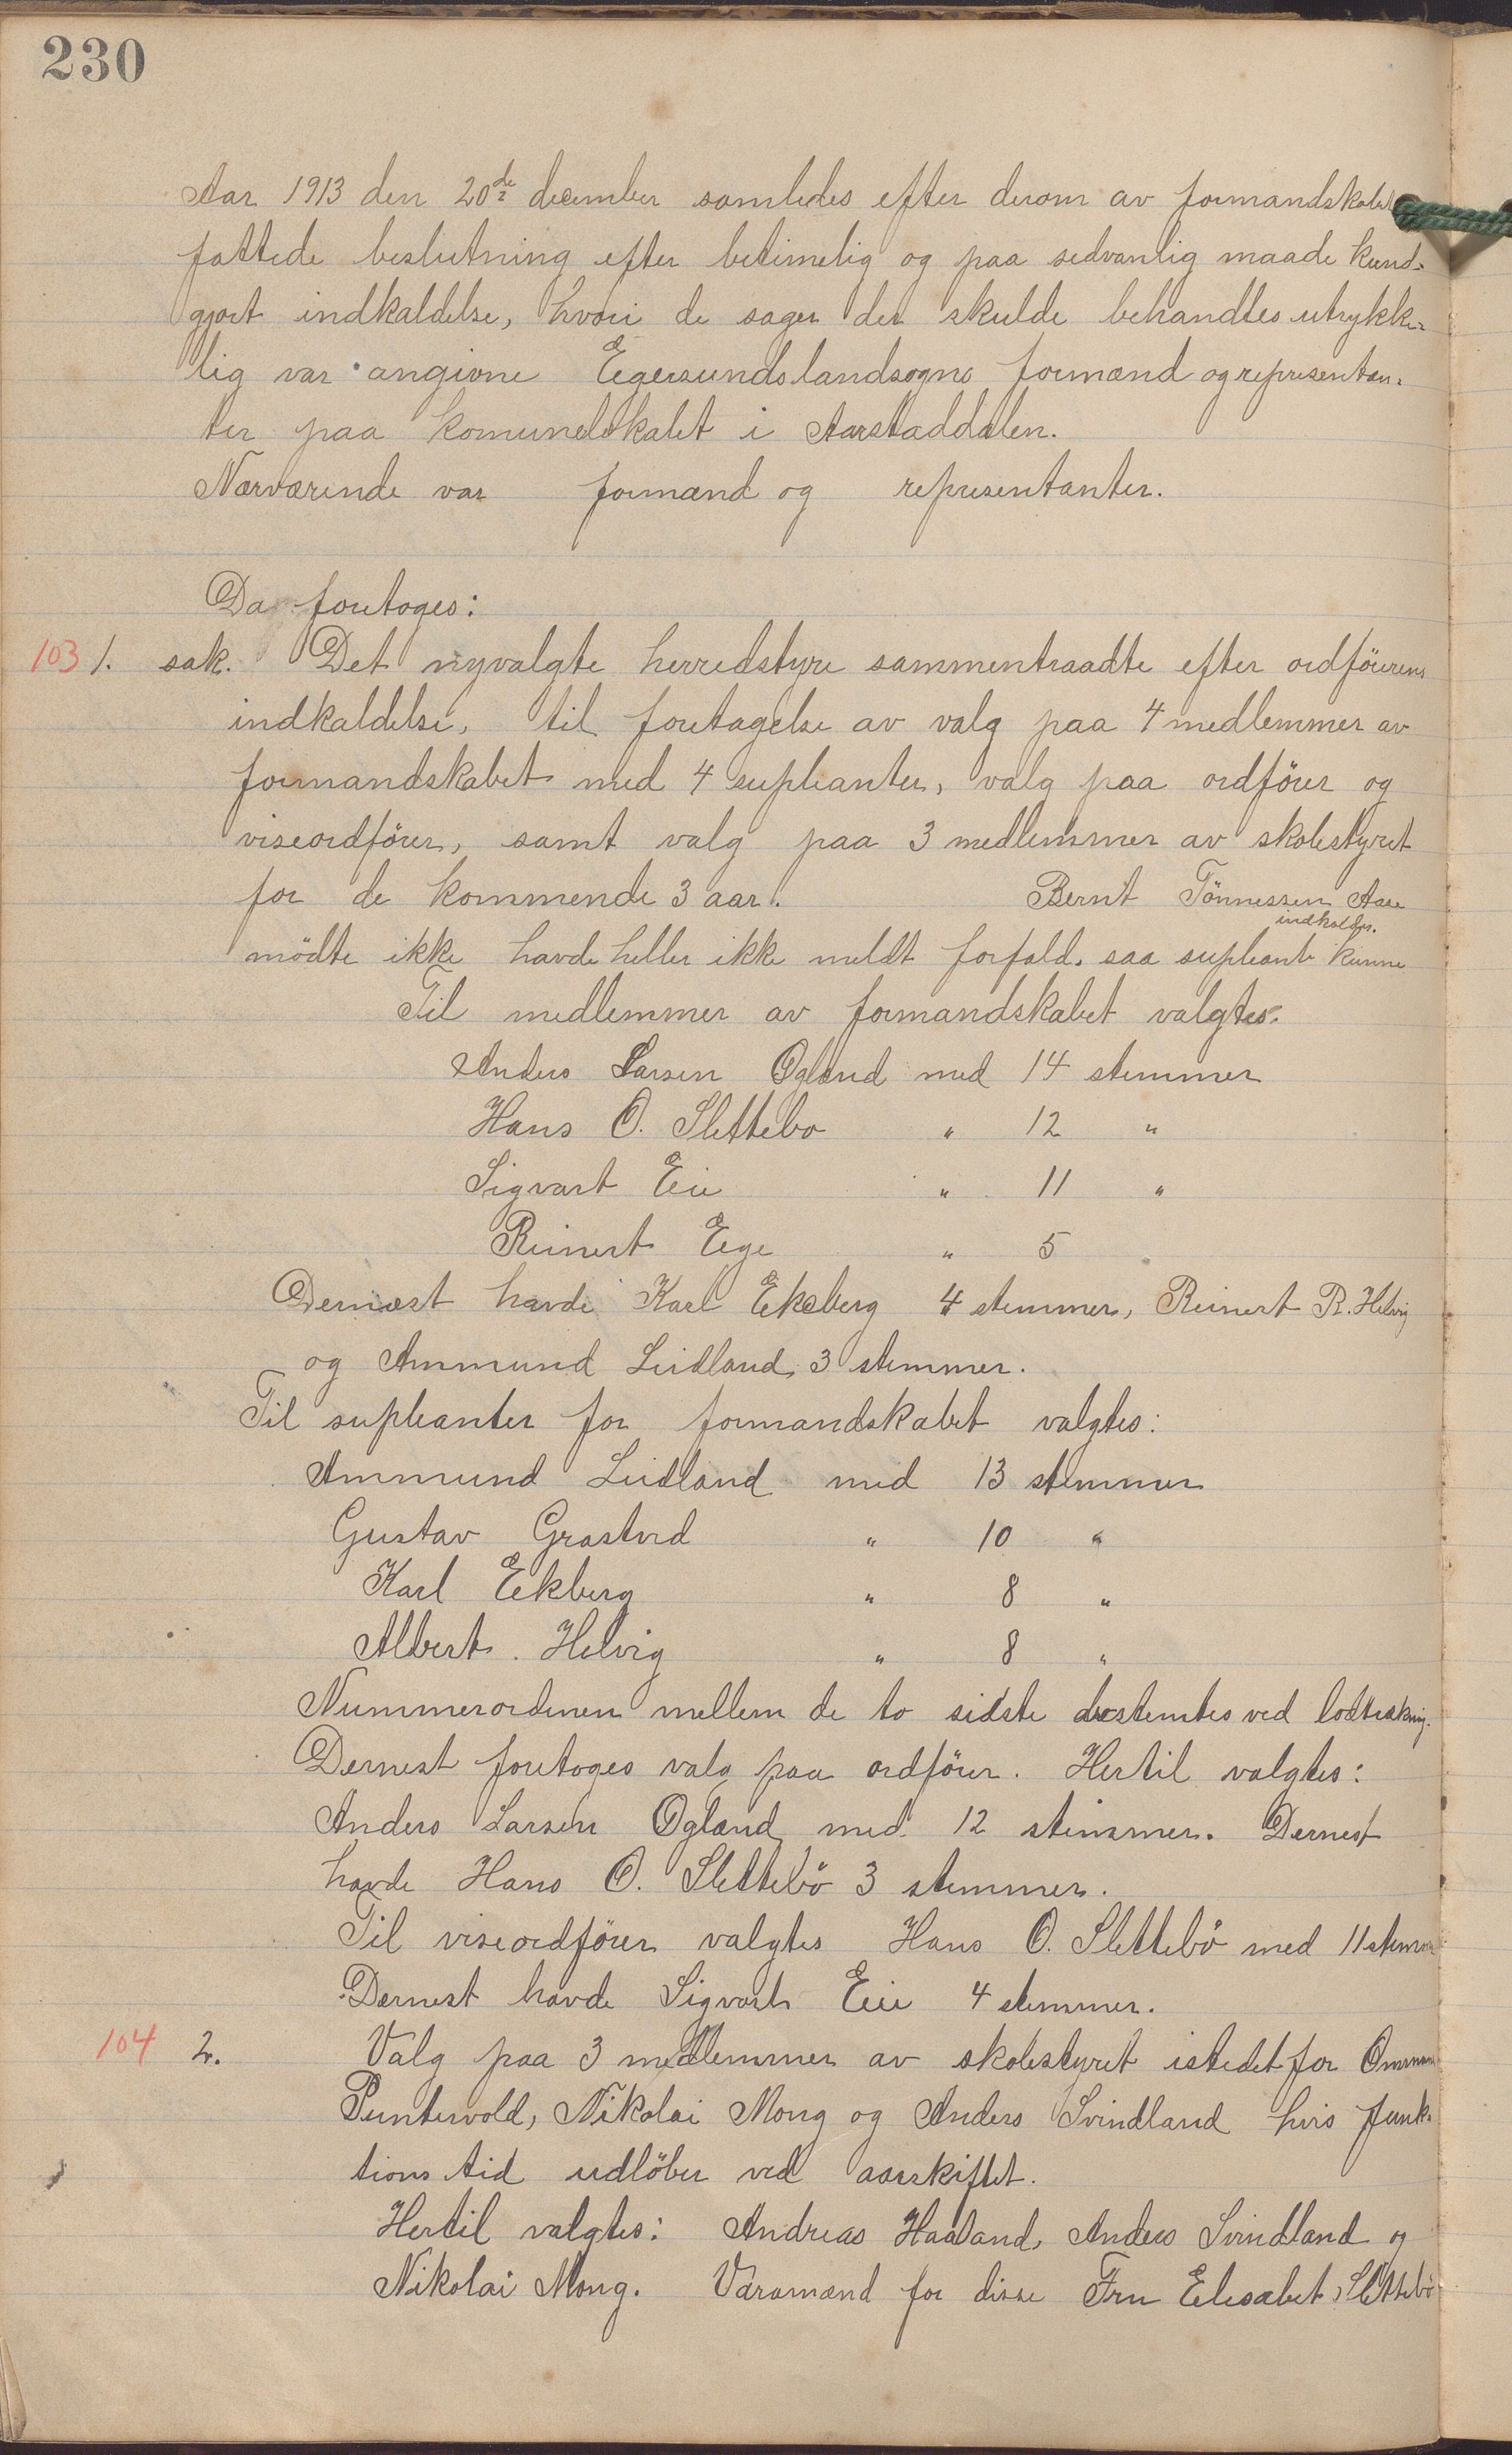 230
Aar 1913 den 20de december samledes efter derom av formandskabet
fattede beslutning efter betimelig og paa sedvanlig maade kund-
gjort indkaldelse, hvori de sager der skulde behandles utrykke-
lig var angivne Egersunds landsogns formænd og representan-
ter paa komunelokalet i Aarstaddalen.
Nærværende var formænd og representanter.
Da foretoges:
103 1. sak. Det nyvalgte herredstyre sammentraadte efter ordförerens
indkaldelse, til foretagelse av valg paa 4 medlemmer av
formandskabet med 4 supleanter, valg paa ordförer og
viseordförer, samt valg paa 3 medlemmer av skolestyret
for de kommende 3 aar. Bernt Tönnessen Aase
indkaldes.
mödte ikke havde heller ikke meldt forfald. saa supleant kunne
Til medlemmer av formandskabet valgtes:
Anders Larsen Ogland med 14 stemmer
Hans O. Slettebo " 12 "
Sigvart Eie " 11 "
Reinert Ege " 5
Dernæst havde Karl Ekeberg 4 stemmer, Reinert R. Helvig
og Ammund Lidland 3 stemmer.
Til supleanter for formandskabet valgtes:
Ammund Lidland med 13 stemmer
Gustav Grastvd " 10 "
Karl Eekberg " 8 "
Albert Helvig " 8 "
Nummerordenen mellem de to sidste bestemtes ved lodtrækning.
Dernest foretoges valg paa ordförer. Hertil valgtes:
Anders Larsen Ogland med 12 stemmer. Dernest
havde Hans O. Slettebö 3 stemmer.
Til viseordförer valgtes Hans O. Slettebö med 11 stemmer
Dernest havde Sigvart Eie 4 stemmer.
104 2. Valg paa 3 medlemmer av skolestyret istedet for Ommund
Puntervold, Nikolai Mong og Anders Svindland hvis funk-
tions tid udlöber ved aarskiftet.
Hertil valgtes: Andreas Haaland, Anders Svindland og
Nikolai Mong. Varamænd for disse Fru Elesabet Slettebö